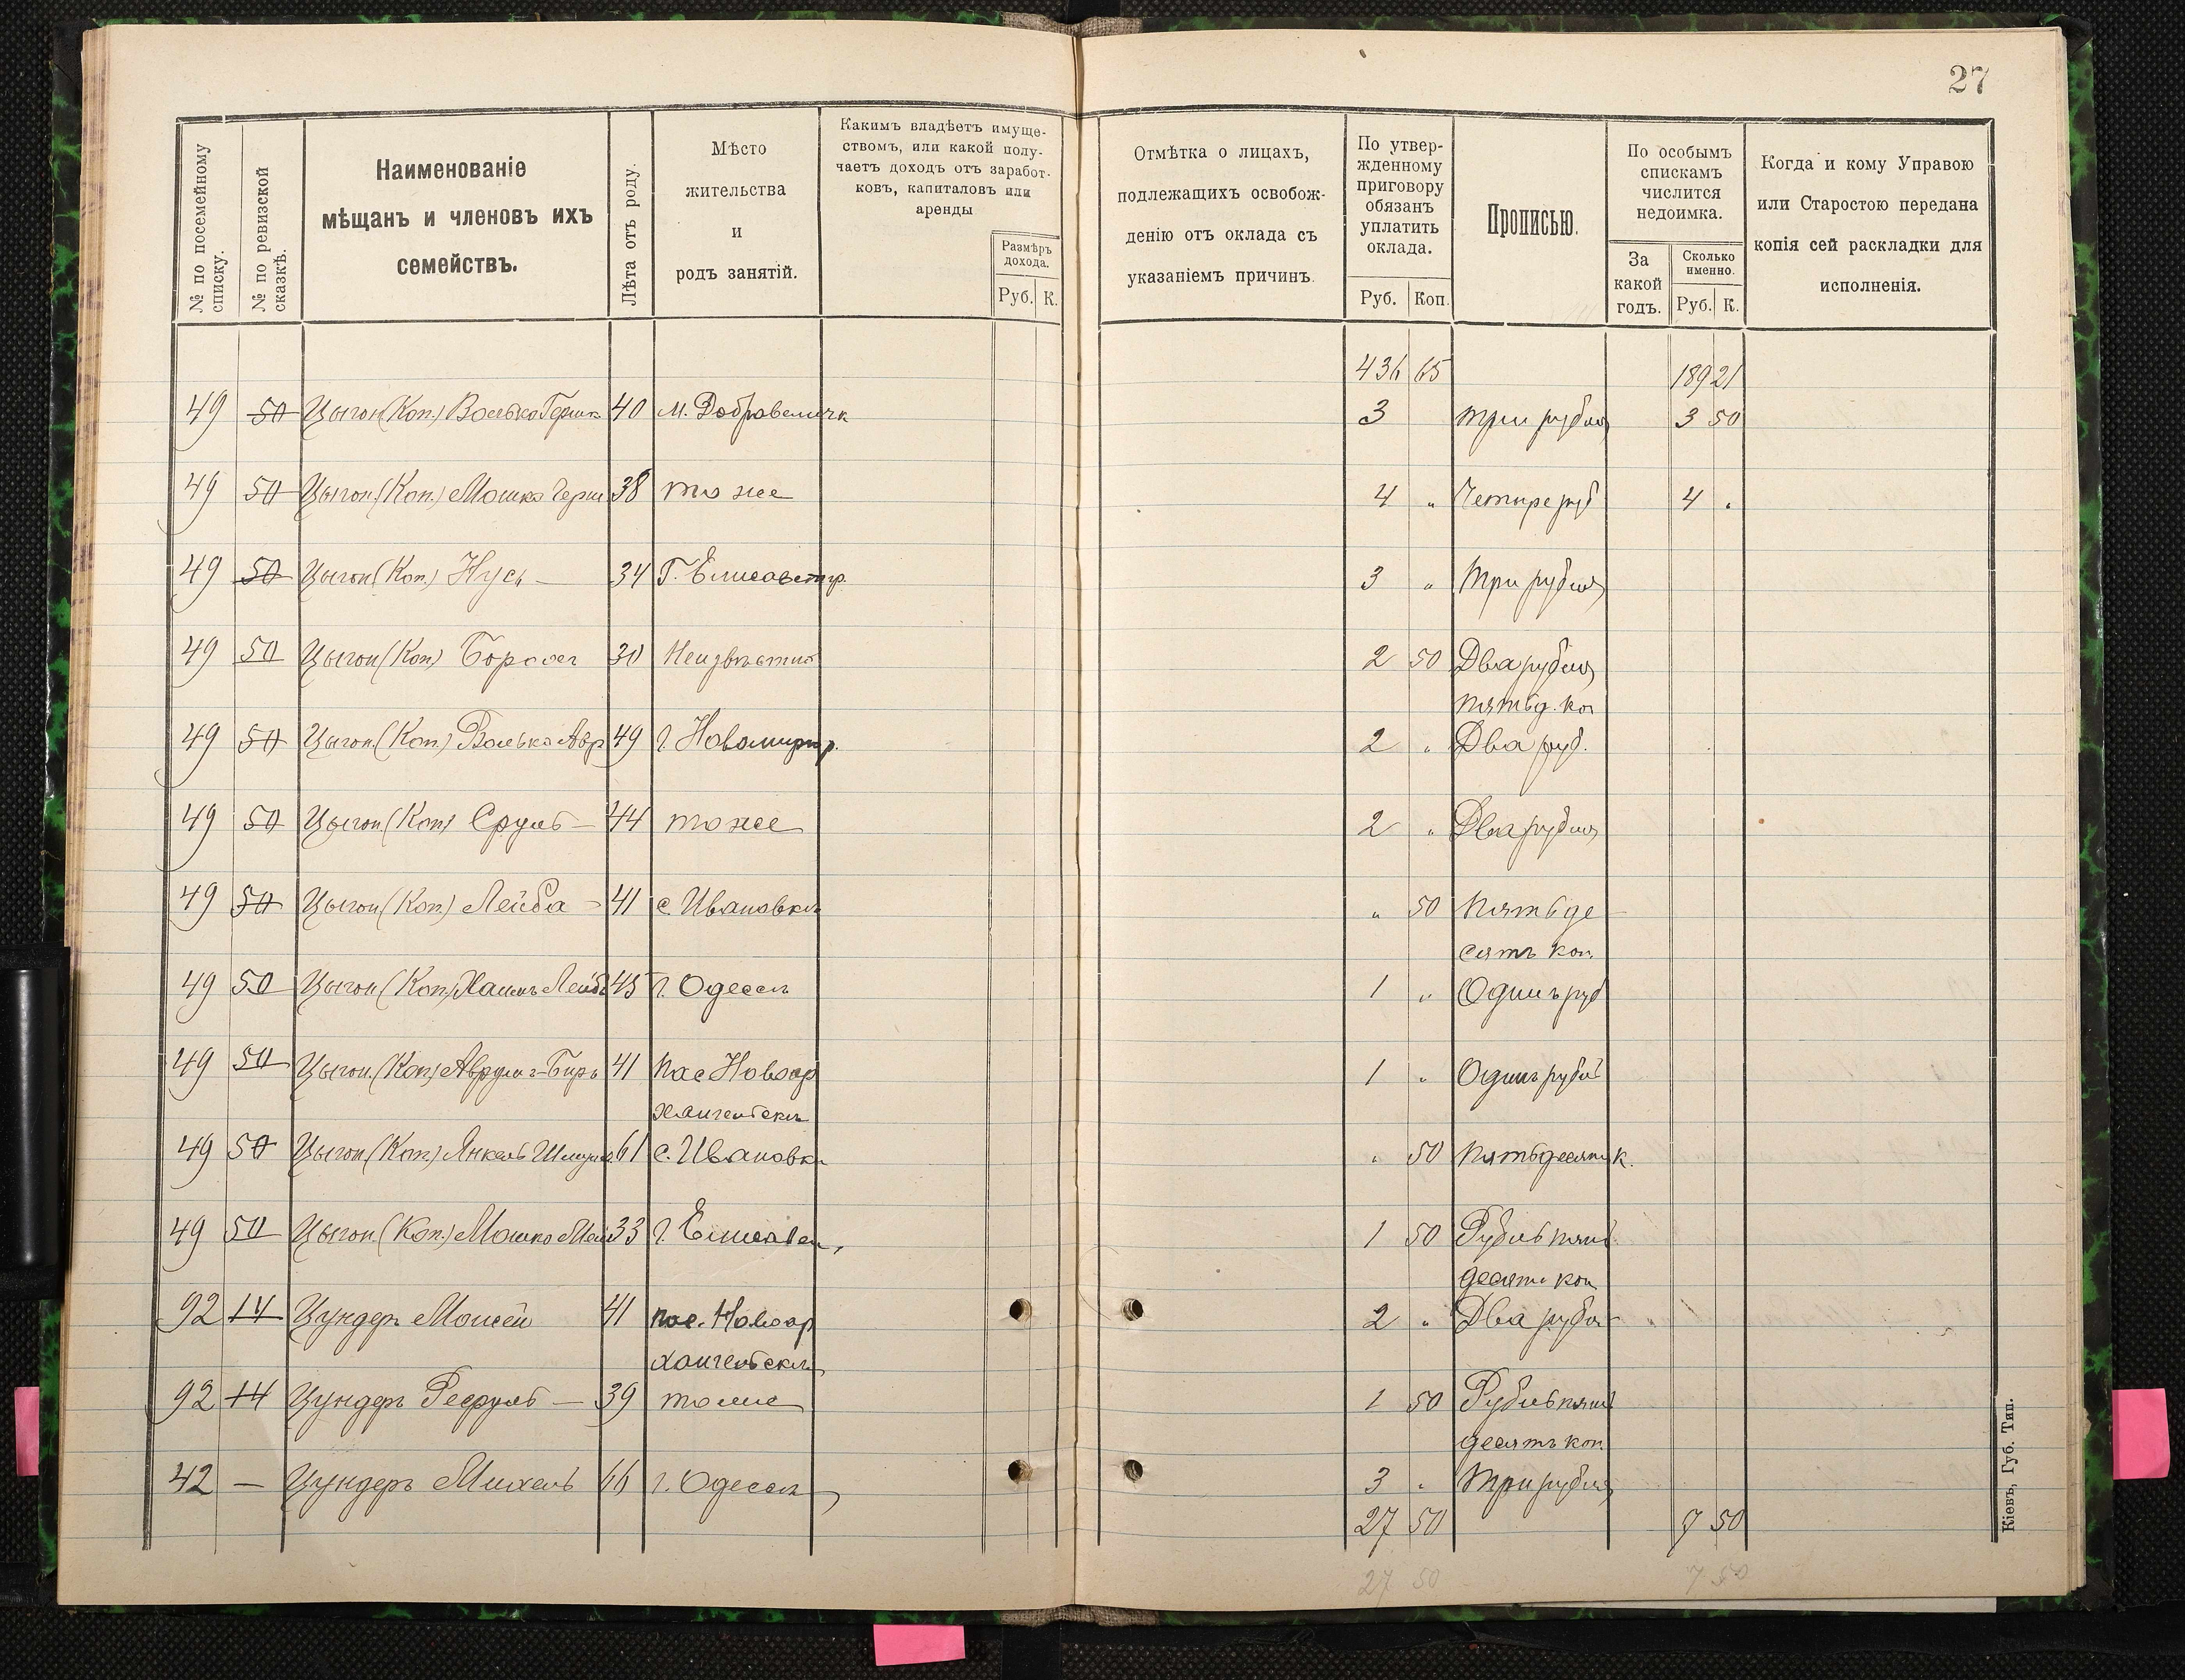 27
№ по посемейному списку.
№ по ревизской сказкѣ.
Наименованіе
мѣщанъ и членовъ ихъ
семействъ.
Лѣта отъ роду.
Мѣсто
жительства
и
родъ занятій.
Какимъ владѣетъ имуще-
ствомъ, или какой полу-
чаетъ доходъ отъ заработ-
ковъ, капиталовъ или
аренды
Размѣръ
дохода.
Руб. К.
Отмѣтка о лицахъ,
подлежащихъ освобож-
денію отъ оклада съ
указаніемъ причинъ.
По утвер-
жденному
приговору
обязанъ
уплатить
оклада.
Руб. Коп.
Прописью.
По особымъ
спискамъ
числится
недоимка.
За
какой
годъ.
Сколько
именно.
Руб. К.
Когда и кому Управою
или Старостою передана
копія сей раскладки для
исполненія.
436 65 189 21
49 50 Цыгон (Коп.) Волько Гершк 40 м. Добровеличк 3 три рубля 3 50
49 50 Цыгон (Коп.) Мошко Герш 38 тоже 4 " Четыре руб 4 "
49 50 Цыгон (Коп.) Нусь — 34 Г. Елисаветгр. 3 " Три рубля
49 50 Цыгон (Коп.) 30 Неизвѣстно 2 50 Два рубля
пятьд. коп
49 50 Цыгон (Коп.) Волько Авр 49 г. Новомиргр. 2 " Два руб.
49 50 Цыгон (Коп.) Сруль — 44 тоже 2 " Два рубля
49 50 Цыгон (Коп.) Лейба — 41 с. Ивановкѣ " 50 Пятьде
сятъ коп.
49 50 Цыгон (Коп.) Хаимъ Лейб 45 г. Одессѣ 1 " Одинъ руб
49 50 Цыгон (Коп.) Аврумъ-Беръ 41 пос Новоар 1 " Одинъ рубль
хангельскѣ
49 50 Цыгон (Коп.) Янкель Шмул. 61 с. Ивановкѣ " 50 Пятьдесят к.
49 50 Цыгон (Коп.) Мошко 33 г. Елисавет. 1 50 Рубль пять
десятъ коп
92 14 Цундеръ Моисей 41 пос. Новоар 2 " Два рубл
хангельскѣ
92 14 Цундеръ — 39 тоже 1 50 Рубль пять
десятъ коп
42 — Цундеръ Михель 66 г. Одессѣ 3 " Три рубля
27 50 7 50
27 50 7 50
Кіевъ, Губ. Тип.